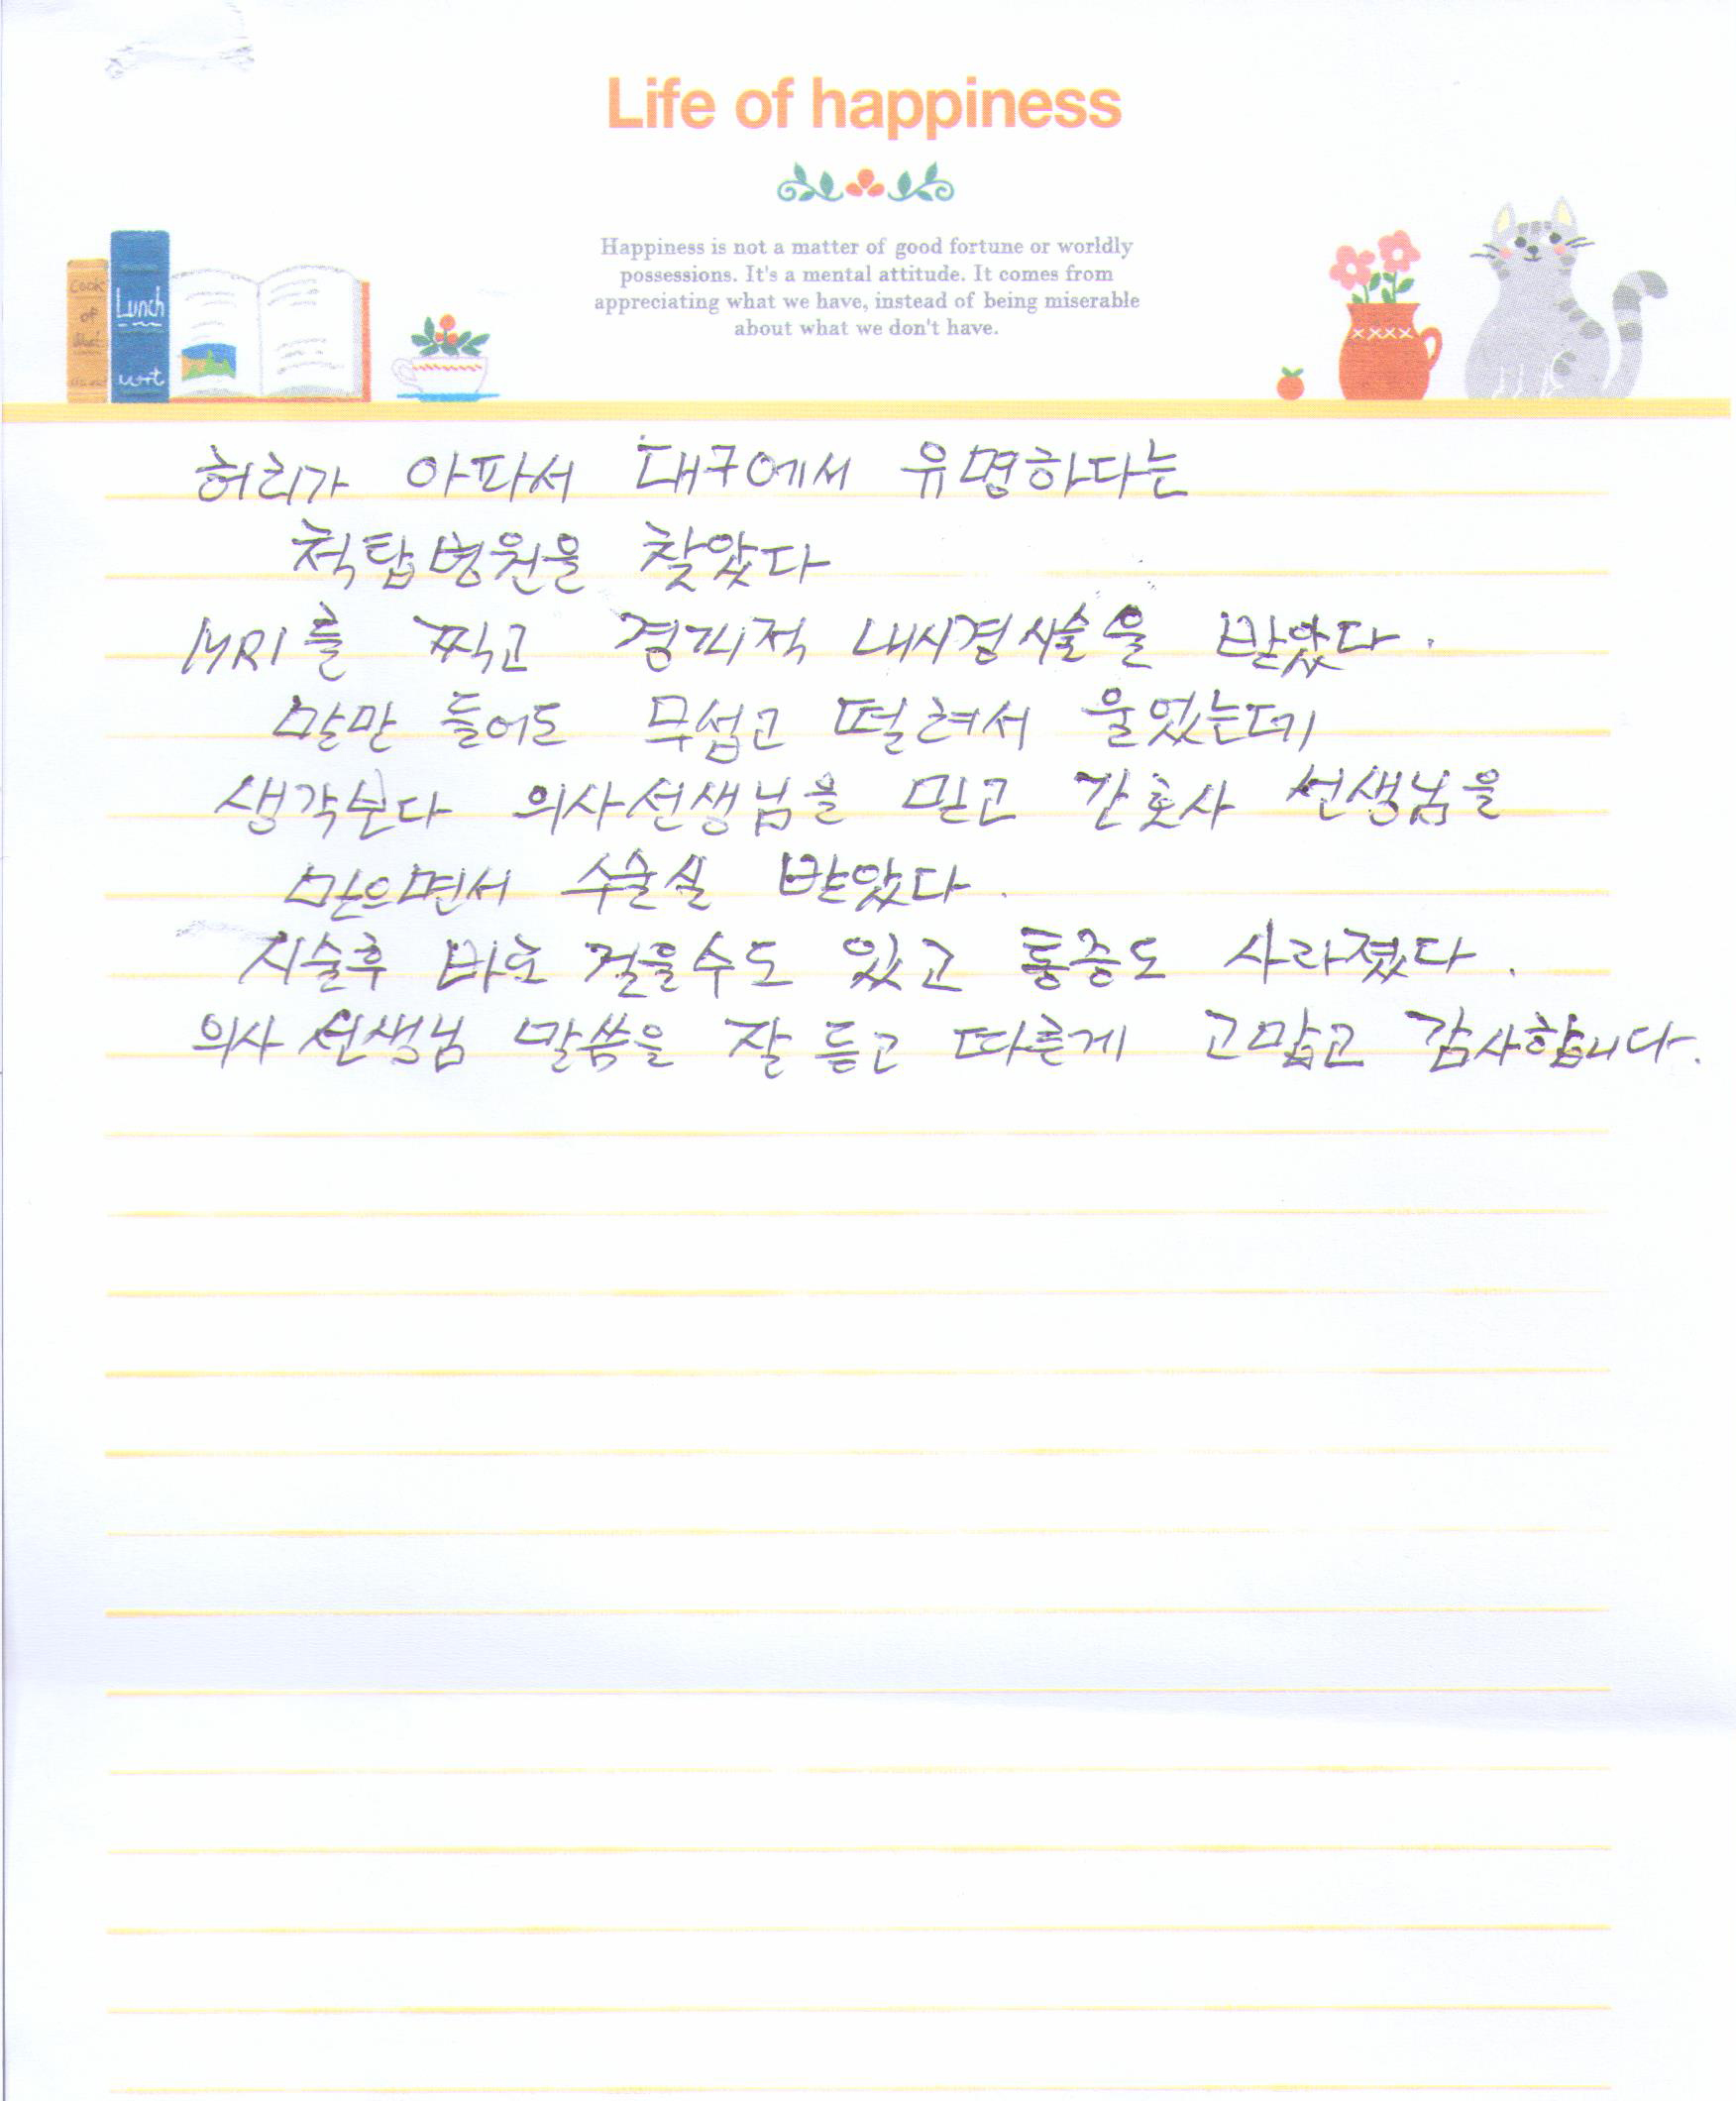 Life of happiness
Happiness is not a matter of good fortune or worldly
possessions. It's a mental attitude. It comes from
appreciating what we have, instead of being miserable
about what we don't have.
Cook
of
Lunch
허리가 아파서 대구에서 유명하다는
척탑병원을 찾았다
MRI를 찍고 경피적 내시경시술을 받았다.
말만 들어도 무섭고 떨려서 울었는데
생각보다 의사선생님을 믿고 간호사 선생님을
믿으면서 수술실 받았다.
시술후 바로 걸을수도 있고 통증도 사라졌다.
의사 선생님 말씀을 잘 듣고 따를게 고맙고 감사합니다.